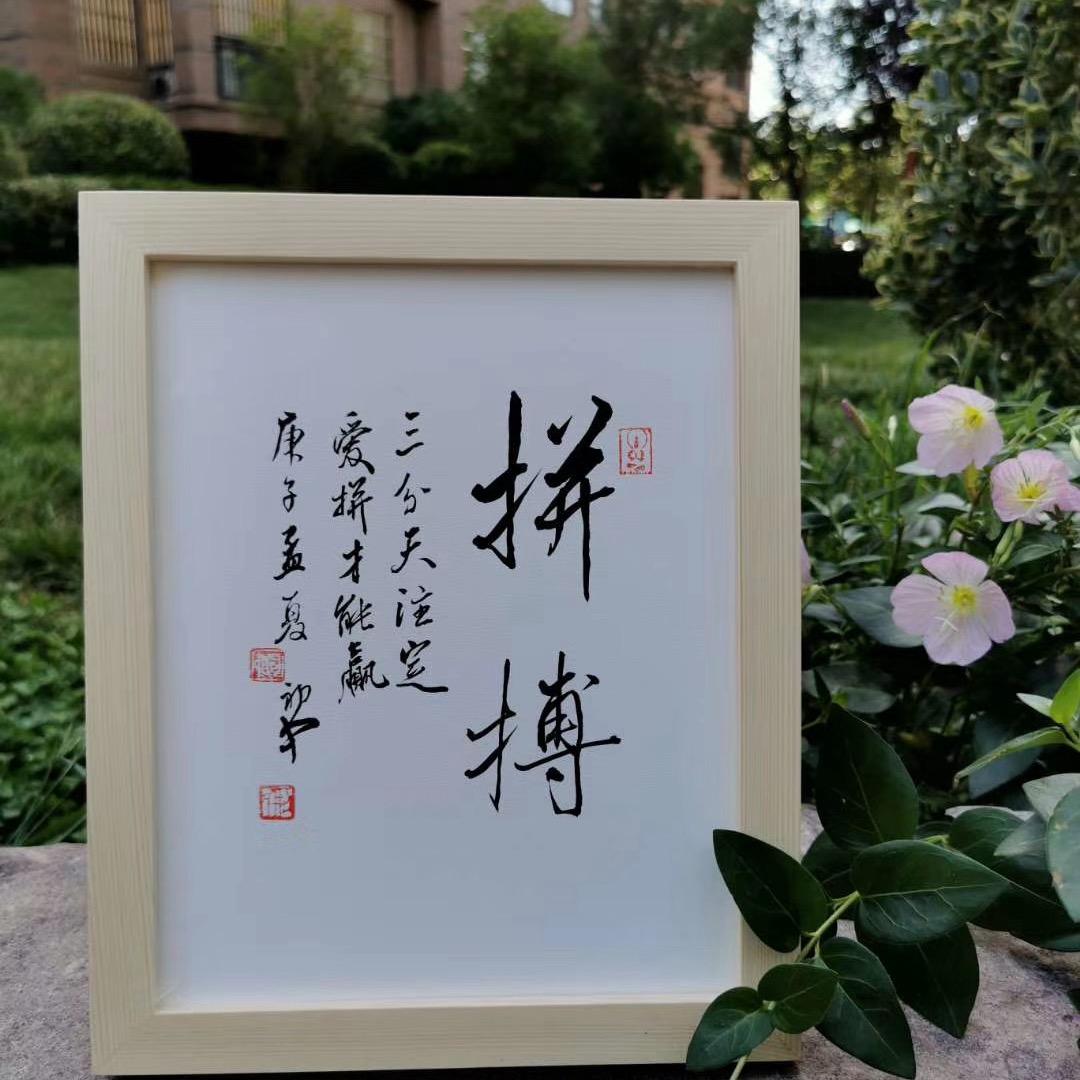 拼搏
三分天注定
爱拼才能赢
庚子孟夏